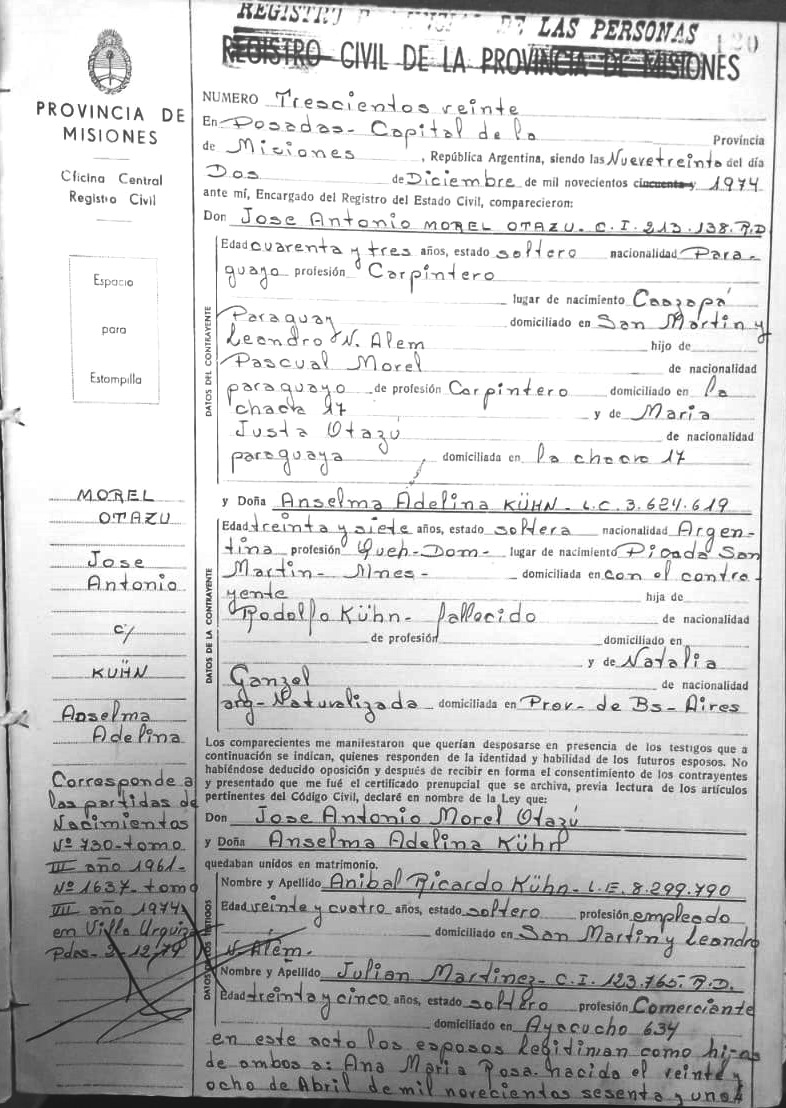 REGISTRO DE LAS PERSONAS
120
REGISTRO CIVIL DE LA PROVINCIA DE MISIONES
PROVINCIA DE
MISIONES
Oficina Central
Registro Civil
Espacio
para
Estampilla
NUMERO Trescientos veinte
En Posadas - Capital de la Provincia
de Misiones, República Argentina, siendo las Nueve treinta del día
Dos de Diciembre de mil novecientos cincuenta y 1974
ante mí, Encargado del Registro del Estado Civil, comparecieron:
Don Jose Antonio MOREL OTAZU. C.I. 213.138. R.D
DATOS DEL CONTRAYENTE
Edad cuarenta y tres años, estado soltero nacionalidad Para-
guayo profesión Carpintero
lugar de nacimiento Caazapá
Paraguay domiciliado en San Martin y
Leandro N. Alem hijo de
Pascual Morel de nacionalidad
paraguayo de profesión Carpintero domiciliado en la
chacra 17 y de Maria
Justa Otazú de nacionalidad
paraguaya domiciliada en la chacra 17
y Doña Anselma Adelina KÜHN - L.C. 3.624.619
DATOS DE LA CONTRAYENTE
Edad treinta y siete años, estado soltera nacionalidad Argen-
tina profesión Queh-Dom- lugar de nacimiento Picada San
Martin - Mnes - domiciliada en con el contra-
yente hija de
Rodolfo Kühn - fallecido de nacionalidad
de profesión domiciliado en
y de Natalia
Ganzel de nacionalidad
arg-Naturalizada domiciliada en Prov- de Bs-Aires
Los comparecientes me manifestaron que querían desposarse en presencia de los testigos que a
continuación se indican, quienes responden de la identidad y habilidad de los futuros esposos. No
habiéndose deducido oposición y después de recibir en forma el consentimiento de los contrayentes
y presentado que me fué el certificado prenupcial que se archiva, previa lectura de los artículos
pertinentes del Código Civil, declaré en nombre de la Ley que:
Don Jose Antonio Morel Otazú
y Doña Anselma Adelina Kühn
quedaban unidos en matrimonio.
DATOS DE TESTIGOS
Nombre y Apellido Anibal Ricardo Kühn - L.E. 8.299.790
Edad veinte y cuatro años, estado soltero profesión empleado
domiciliado en San Martin y Leandro
N. Alem.
Nombre y Apellido Julian Martinez - C.I. 123.765. R.D.
Edad treinta y cinco años, estado soltero profesión Comerciante
domiciliado en Ayacucho 634
en este acto los esposos legitiman como hijas
de ambos a: Ana Maria Rosa nacida el veinte y
ocho de Abril de mil novecientos sesenta y uno
MOREL
OTAZU
Jose
Antonio
c/
KUHN
Anselma
Adelina
Corresponde a
las partidas de
Nacimientos
Nº 730-tomo
III año 1961-
Nº 1637-tomo
III año 1974
en Villa Urquiza
Pdas- 2-12/74